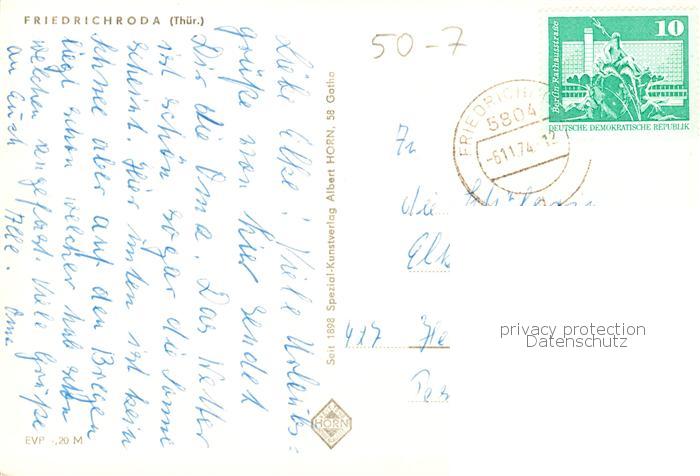 FRIEDRICHRODA (Thür.)
Liebe Elke! Viele Urlaubs=
grüße von hier sendet
Dir die Oma. Das Wetter
ist schön sogar die Sonne
scheint. Hier unten ist kein
Schnee aber auf den Bergen
liegt schon welcher hab schon
welchen angefasst. Viele Grüße
an Euch Alle. Oma
EVP -,20 M
Seit 1898 Spezial-Kunstverlag Albert HORN, 58 Gotha
HORN
50-7
10
Berlin Rathausstraße
DEUTSCHE DEMOKRATISCHE REPUBLIK
FRIEDRICH
5804
-6.11.74-12
An
die
Elk
privacy protection
Datenschutz